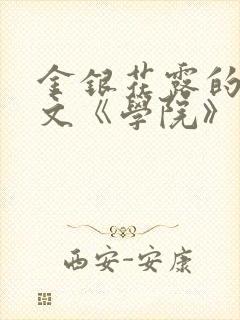 金银花露的
文《學院》
西安-安康